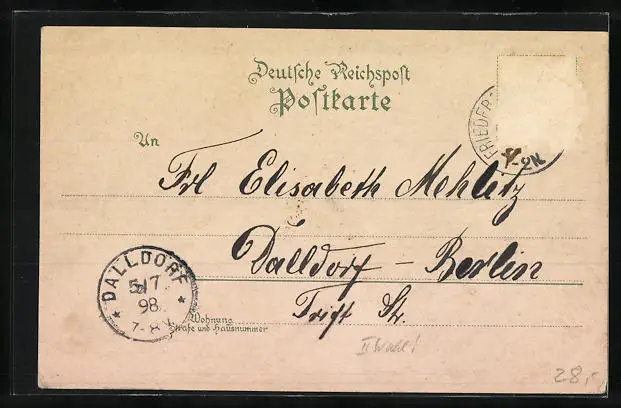 Deutsche Reichspost
Postkarte
FRIEDER
An
7-8N
Frl Elisabeth Mehlitz
Dalldorf - Berlin
Trift Str.
DALLDORF
5/7
98.
7-8N
Wohnung
Straße und Hausnummer
II Wahl!
28,-